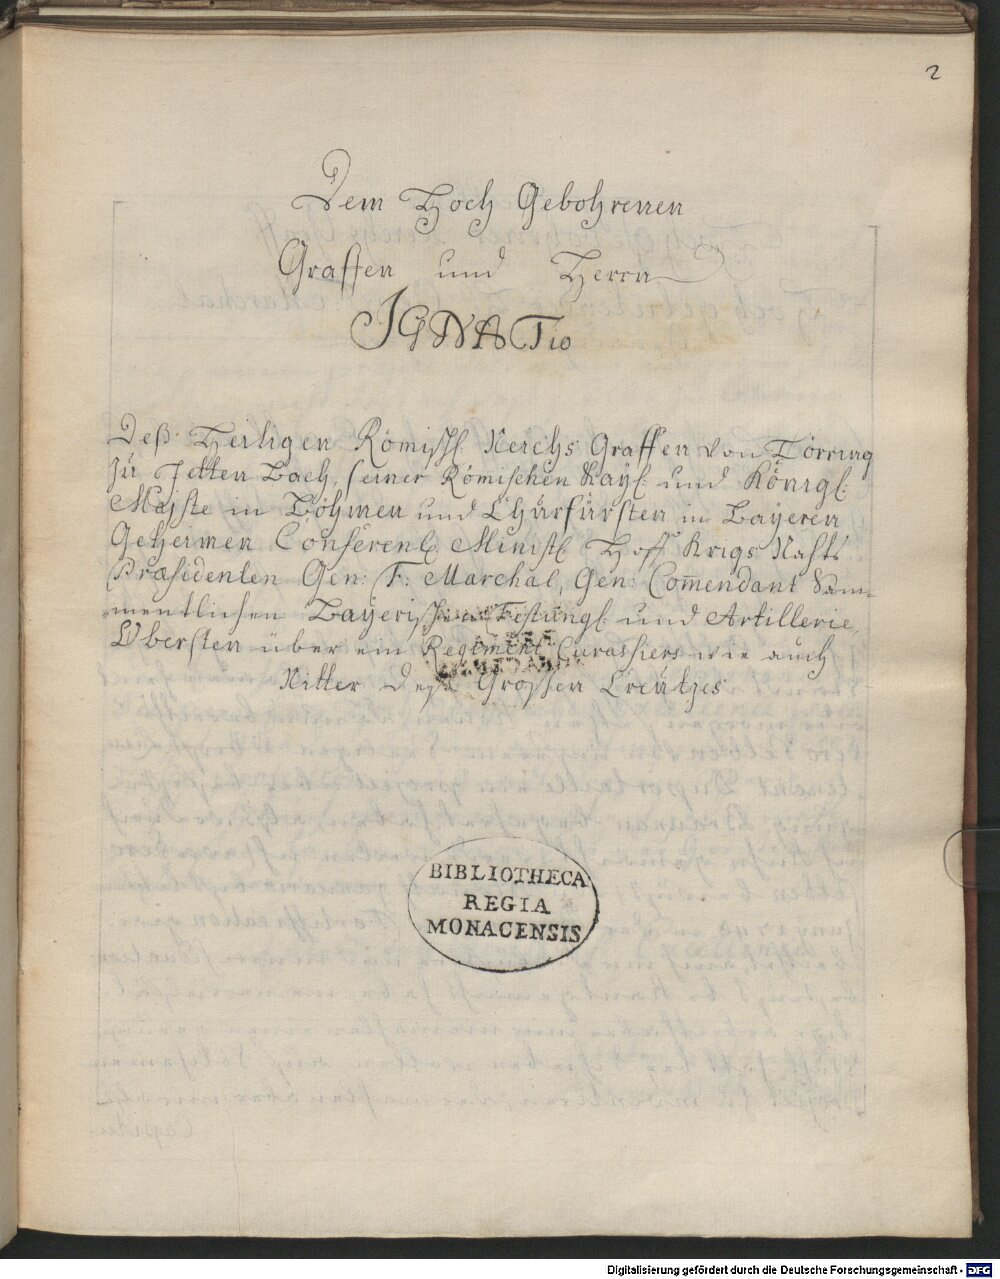 2
Dem Hoch Gebohrenen
Graffen und Herrn
IGNATio
Deß Heiligen Römisch: Reichs Graffen von Törring
zu Jetten Bach, seiner Römischen Kaysl: und Königl:
Majste in Böhmen und Chürfürsten in Bayeren
Geheimen Conferenz Minist: Hoff Krigs Rahts
Præsidenten Gen: F: Marchal, Gen: Comendant Sam-
mentlichen Bayerischen Festungs: und Artillerie
Obersten über ein Regiment Curassiers wie auch
Ritter deß Grossen Creützes
BIBLIOTHECA
REGIA
MONACENSIS
Digitalisierung gefördert durch die Deutsche Forschungsgemeinschaft - DFG